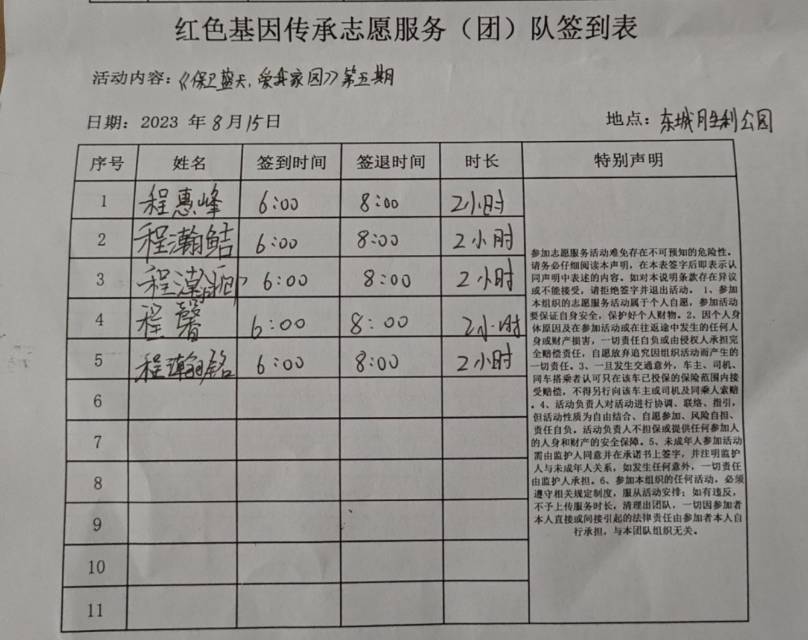 红色基因传承志愿服务（团）队签到表
活动内容：《保卫蓝天，爱我家园》第五期
日期：2023 年8月15日 地点：东城胜利公园
序号 姓名 签到时间 签退时间 时长 特别声明
1 程惠峰 6:00 8:00 2小时
2 程瀚皓 6:00 8:00 2小时
3 程 6:00 8:00 2小时
4 程馨 6:00 8:00 2小时
5 程瀚铭 6:00 8:00 2小时
6
7
8
9
10
11
参加志愿服务活动难免存在不可预知的危险性。
请务必仔细阅读本声明，在本表签字后即表示认
同声明中表述的内容。如对本说明条款存在异议
或不能接受，请拒绝签字并退出活动。 1、参加
本组织的志愿服务活动属于个人自愿，参加活动
要保证自身安全，保护好个人财物。2、因个人身
体原因及在参加活动或在往返途中发生的任何人
身或财产损害，一切责任自负或由侵权人承担完
全赔偿责任，自愿放弃追究因组织活动而产生的
一切责任。3、一旦发生交通意外，车主、司机、
同车搭乘者认可只在该车已投保的保险范围内接
受赔偿，不得另行向该车主或司机及同乘人索赔
。4、活动负责人对活动进行协调、联络、指引，
但活动性质为自由结合、自愿参加、风险自担、
责任自负。活动负责人不担保或提供任何参加人
的人身和财产的安全保障。5、未成年人参加活动
需由监护人同意并在承诺书上签字，并注明监护
人与未成年人关系，如发生任何意外，一切责任
由监护人承担。6、参加本组织的任何活动，必须
遵守相关规定制度，服从活动安排；如有违反，
不予上传服务时长，清理出团队，一切因参加者
本人直接或间接引起的法律责任由参加者本人自
行承担，与本团队组织无关。